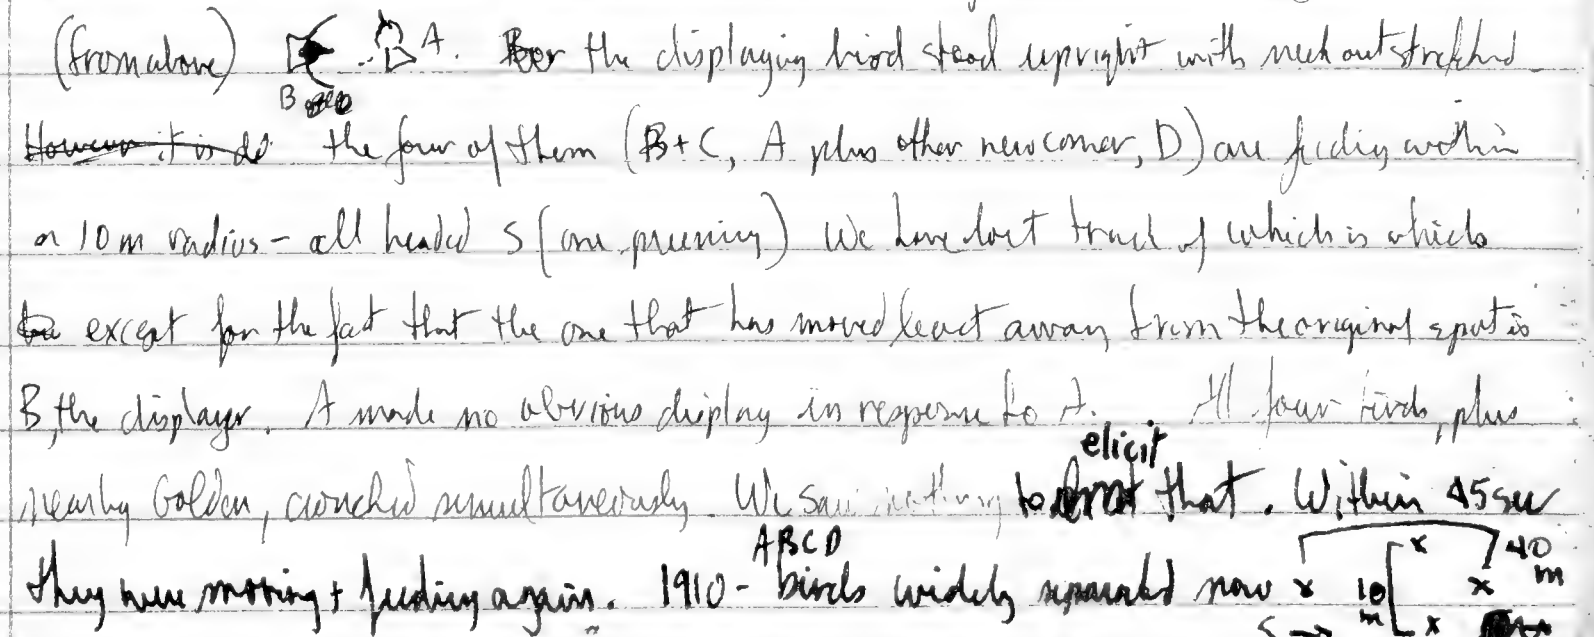 (from above) B A. the displaying bird stood upright with neck outstretched
However it is do the four of them (B+C, A plus other newcomer, D) are feeding within
a 10 m radius - all headed S (one preening) We have lost track of which is which
except for the fact that the one that has moved least away from the original spot is
B, the displayer. A made no obvious display in response to A. All four birds, plus
nearby Golden, crouched simultaneously. We saw nothing to elicit that. Within 45 sec
they were moving + feeding again. 1910 - ABCD birds widely separated now x 10 m x x x 40 m